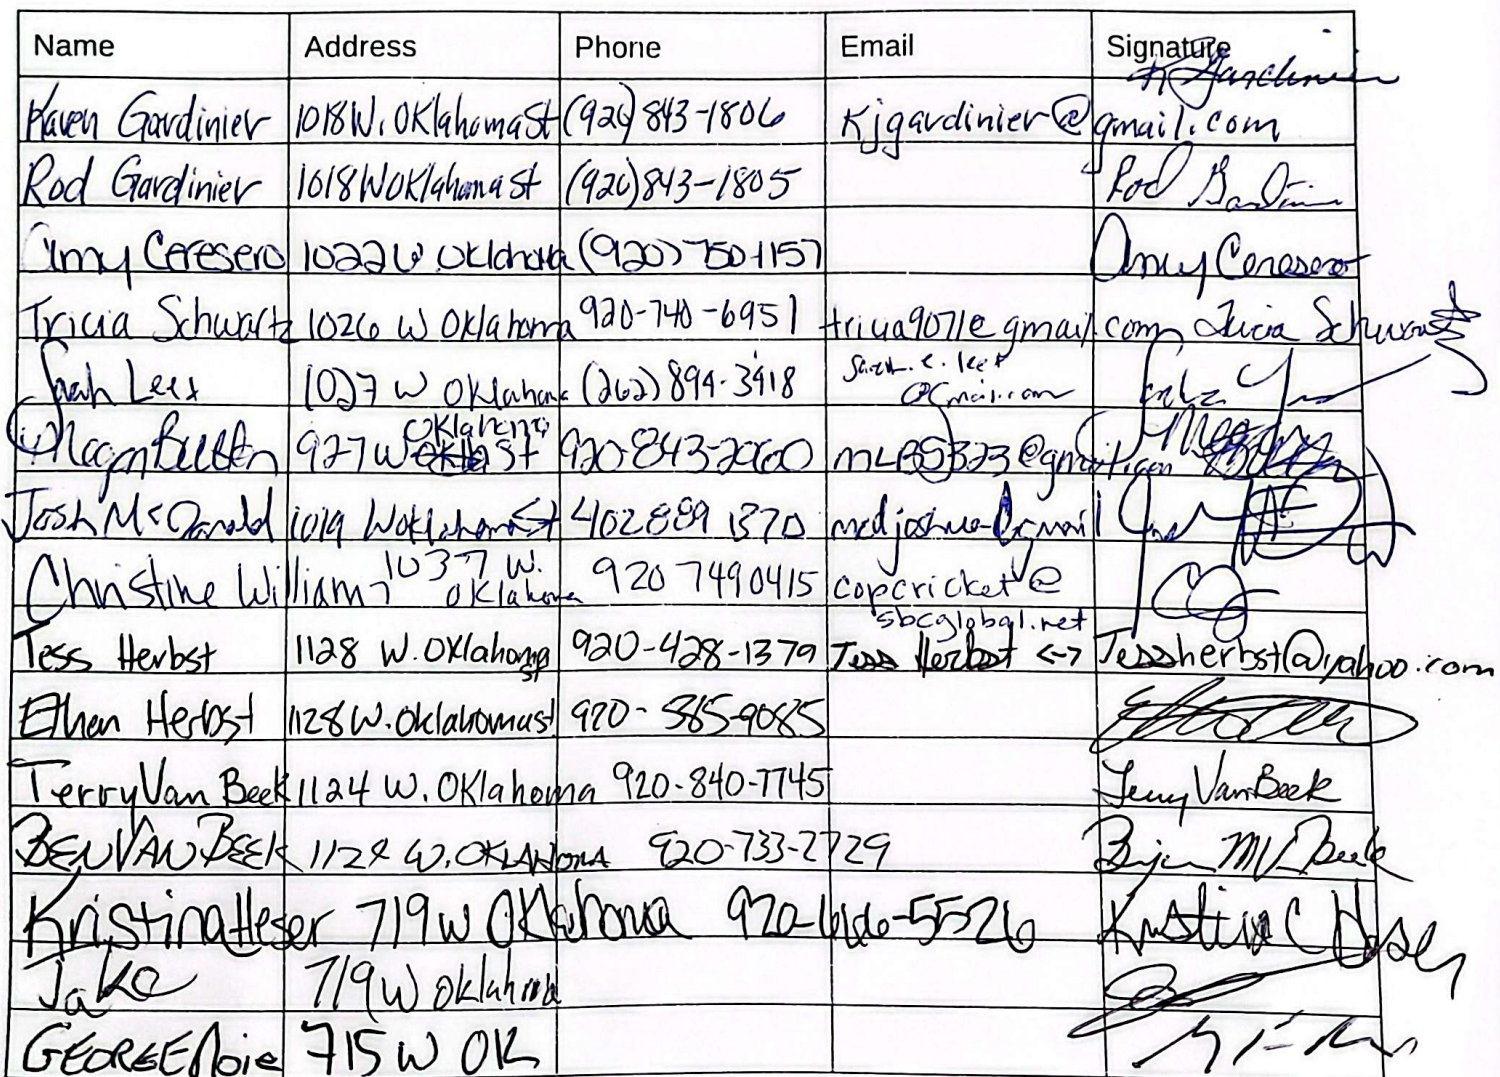 Name Address Phone Email Signature
K Gardinier
Karen Gardinier 1018 W. Oklahoma St (920) 843-1806 Kjgardinier@gmail.com
Rod Gardinier 1018 W Oklahoma St (920) 843-1805 Rod Gardinier
Amy Ceresero 1022 W Oklahoma (920) 750-1157 Amy Ceresero
Tricia Schwartz 1026 W Oklahoma 920-740-6951 tricia9071@gmail.com Tricia Schwartz
Sarah Lees 1027 W Oklahoma (262) 894-3418
@gmail.com
Oklahoma
Megan 927 W St 920-843-2060 @gmail.com
Josh McDonald 1019 W Oklahoma St 402 889 1370 mcdjoshua@gmail
Christine Williams 1037 W. Oklahoma 920 7490415 copcricket@
sbcglobal.net
Tess Herbst 1128 W. Oklahoma St 920-428-1379 Tess Herbst <-> Tessherbst@yahoo.com
Ethan Herbst 1128 W. Oklahoma St 920-585-9085
Terry Van Beek 1124 W. Oklahoma 920-840-7745 Terry Van Beek
BEN VAN BEEK 1124 W. OKLAHOMA 920-733-2729
Kristina Heser 719 W Oklahoma 920-666-5526 Kristina C Heser
Jake 719 W Oklahoma
GEORGE 715 W OK